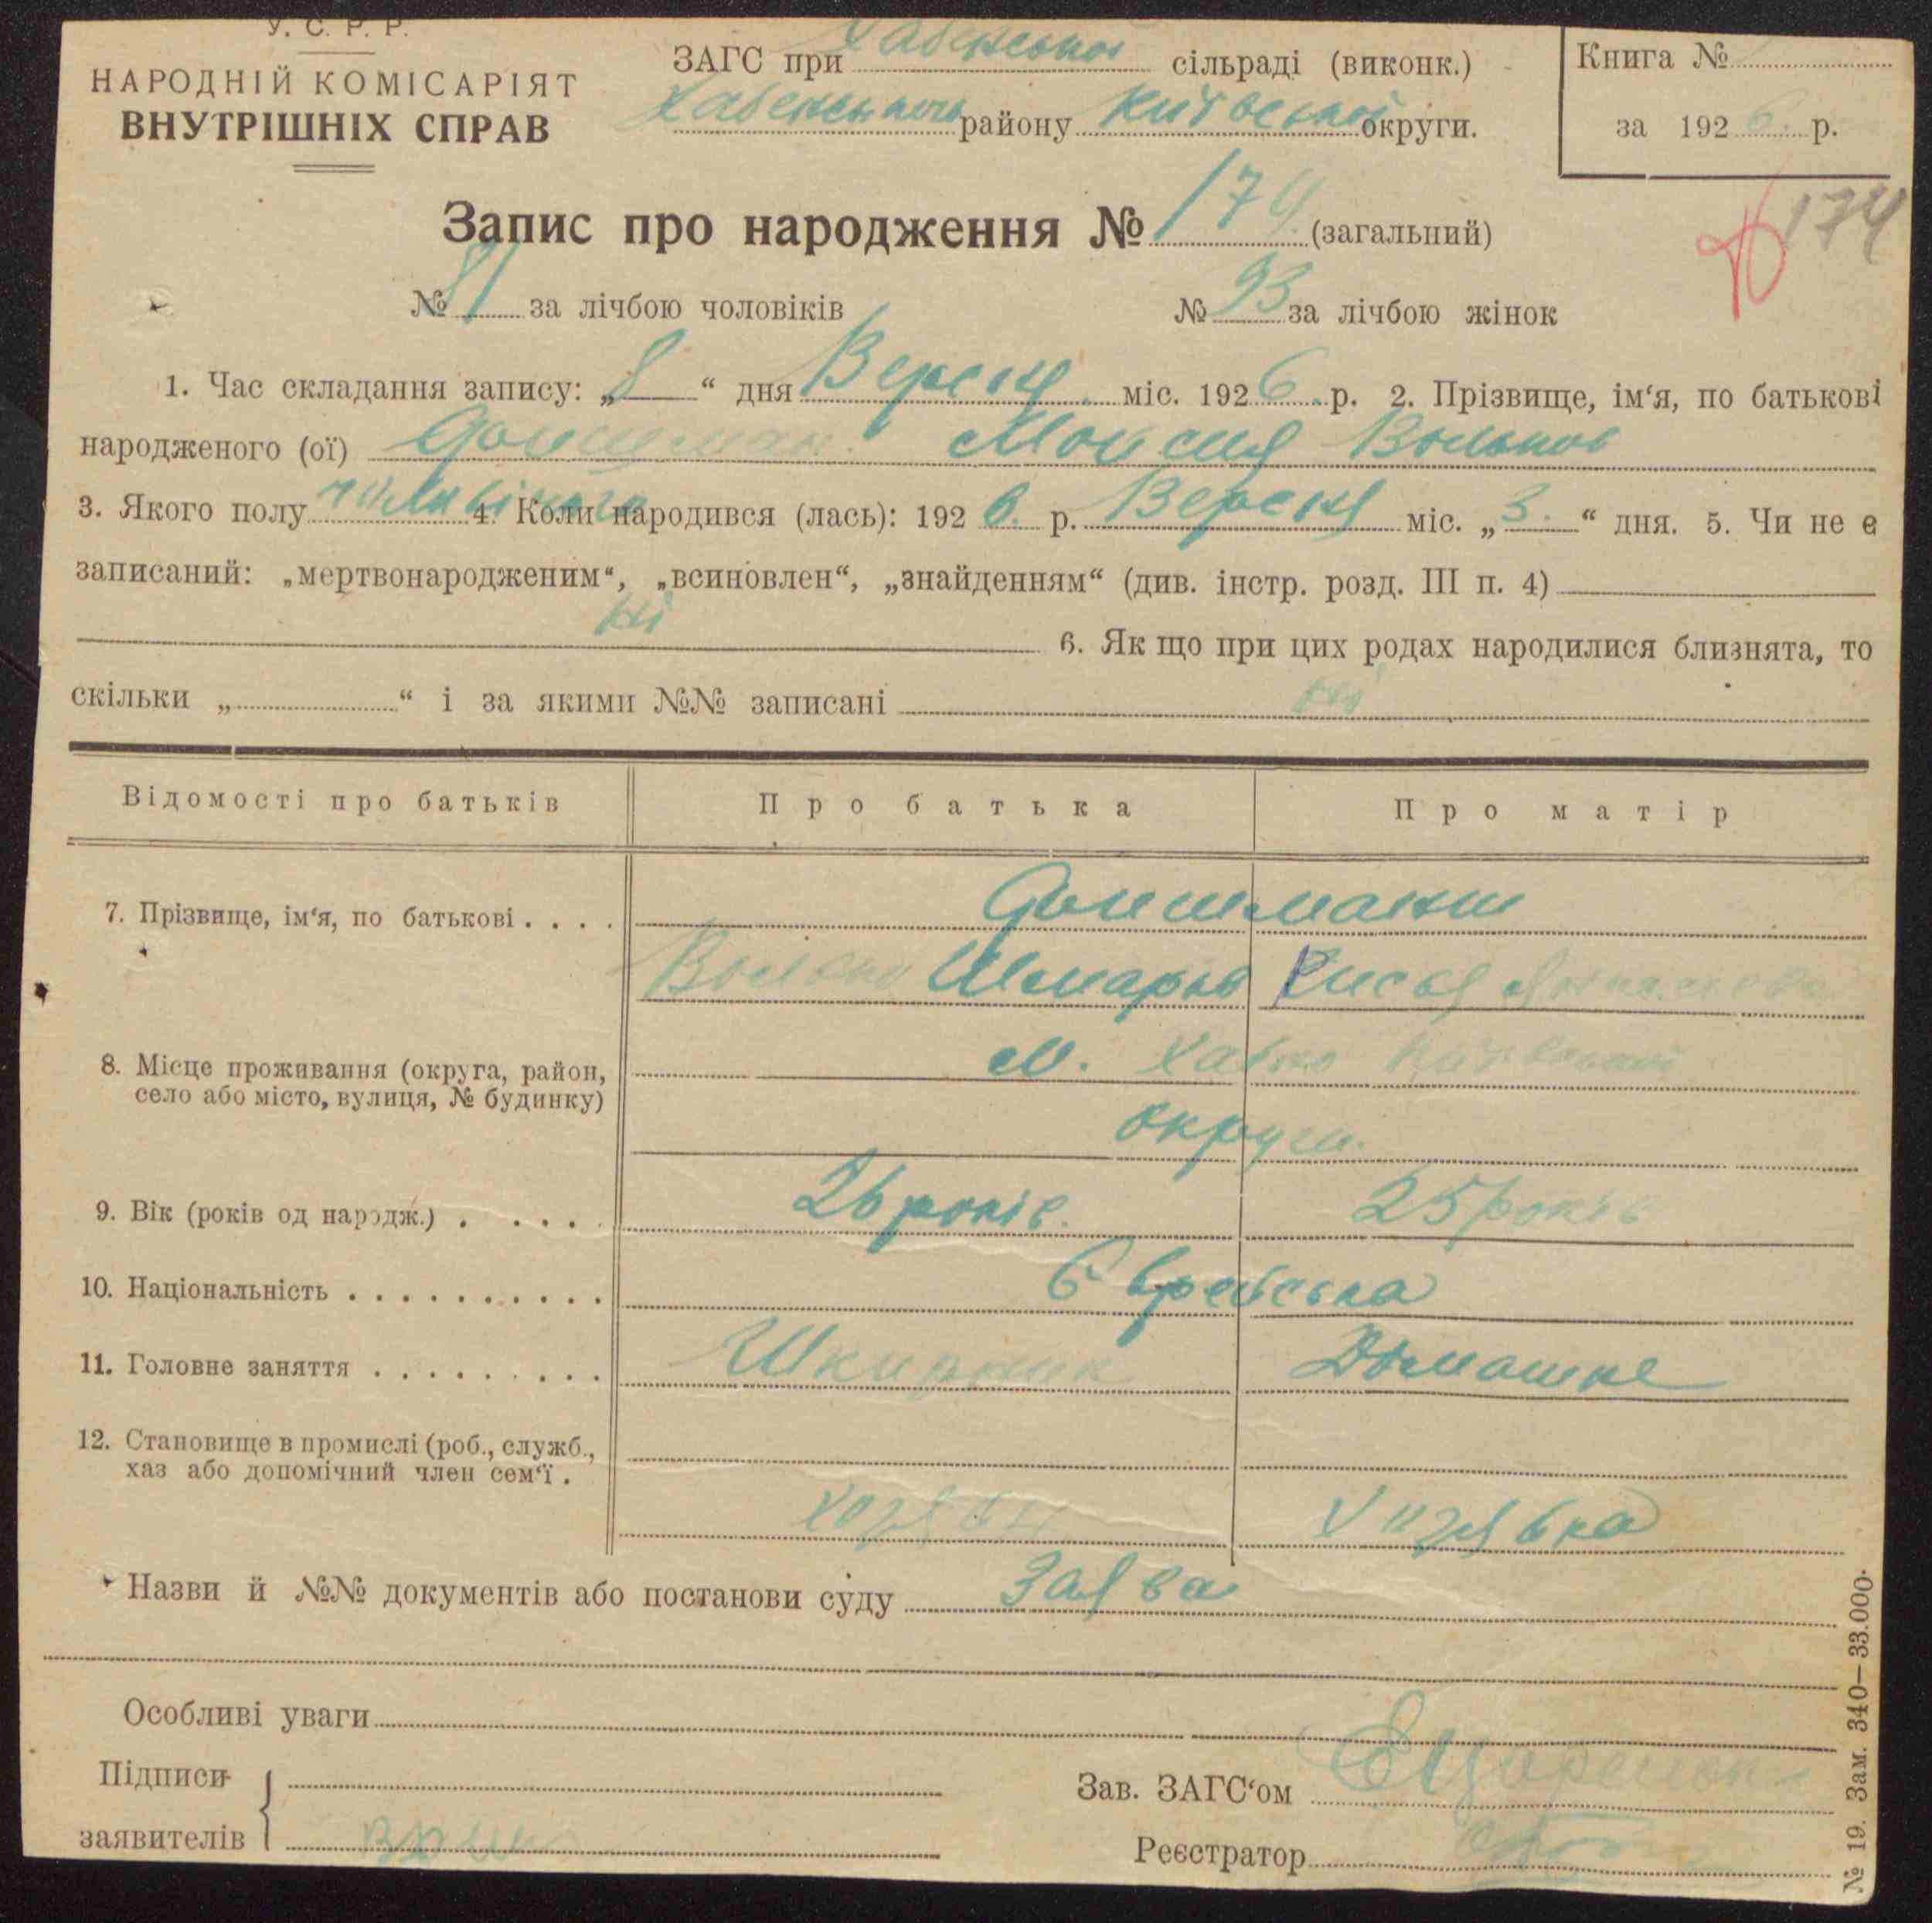 У. С. Р. Р.
НАРОДНІЙ КОМІСАРІЯТ
ВНУТРІШНІХ СПРАВ
ЗАГС при Хабенської сільраді (виконк.)
Хабенського району Київської округи.
Книга №
за 1926 р.
Запис про народження № 174 (загальний)
174
№ 81 за лічбою чоловіків № 93 за лічбою жінок
1. Час складання запису: „8“ дня Вересня міс. 1926 р. 2. Прізвище, ім‘я, по батькові
народженого (ої) Мойсея Вольков
3. Якого полу чоловічого 4. Коли народився (лась): 1926 р. Вересня міс. „3.“ дня. 5. Чи не є
записаний: „мертвонародженим“, „всиновлен“, „знайденням“ (див. інстр. розд. III п. 4)
ні 6. Як що при цих родах народилися близнята, то
скільки „ “ і за якими №№ записані ні
Відомості про батьків Про батька Про матір
7. Прізвище, ім‘я, по батькові . . . .
Шмарьов
8. Місце проживання (округа, район,
село або місто, вулиця, № будинку)
м. Хабно Київської
округи.
9. Вік (років од народж.) . . . . . 26 років. 25 років
10. Національність . . . . . . . . . . Єврейська
11. Головне заняття . . . . . . . . . Шкирник Домашне
12. Становище в промислі (роб., служб.,
хаз або допомічний член сем‘ї .
хозяїн хозяйка
Назви й №№ документів або постанови суду Заява
Особливі уваги
Підписи
заявителів
Зав. ЗАГС‘ом
Реєстратор
№ 19. Зам. 340—33.000.